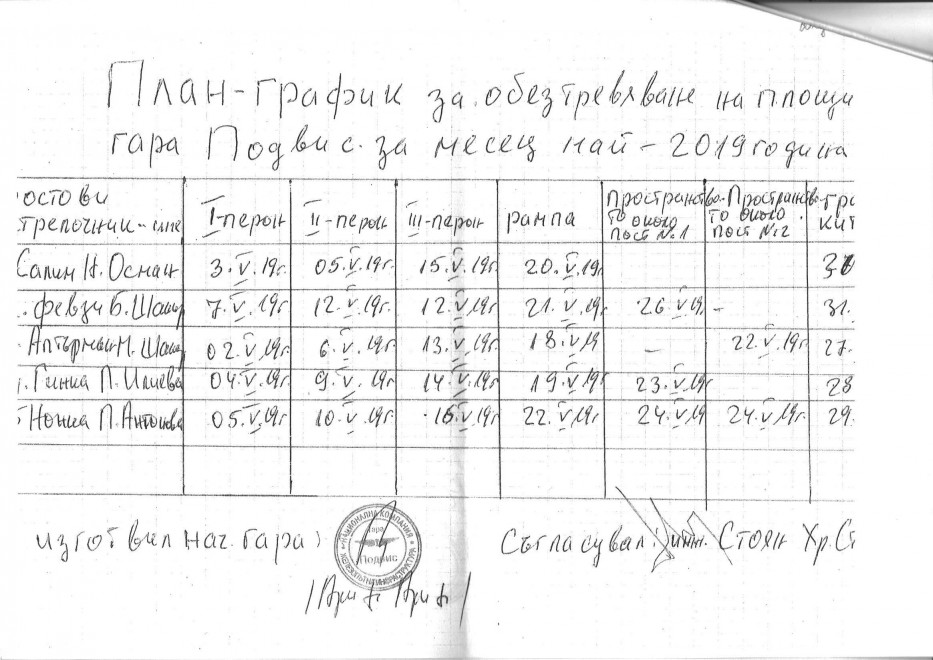 План-график за обезтревяване на площи
гара Подвис за месец май - 2019 година
остови
I-перон II-перон III-перон рампа Пространство то около пост №1 Пространство то около пост №2
Салин Н. Осман 3.V.19г. 05.V.19г. 15.V.19г. 20.V.19г
Февзи Б. 7.V.19г. 12.V.19г. 12.V.19г. 21.V.19г. 26.V.19. - 31.
02.V.19г. 6.V.19г. 13.V.19г. 18.V.19 - 22.V.19г. 27.
Гинка П. Илиева 04.V.19г. 9.V.19г. 14.V.19г. 19.V.19г. 23.V.19г. 28
Нонка П. Антонова 05.V.19г. 10.V.19г. 16.V.19г. 22.V.19г. 24.V.19 24.V.19г. 29.
изготвил нач. гара:
НАЦИОНАЛНА КОМПАНИЯ
гара
Подвис
ЖЕЛЕЗОПЪТНА ИНФРАСТРУКТУРА
Съгласувал: инж. Стоян Хр. Ст
/Ариф Ариф/